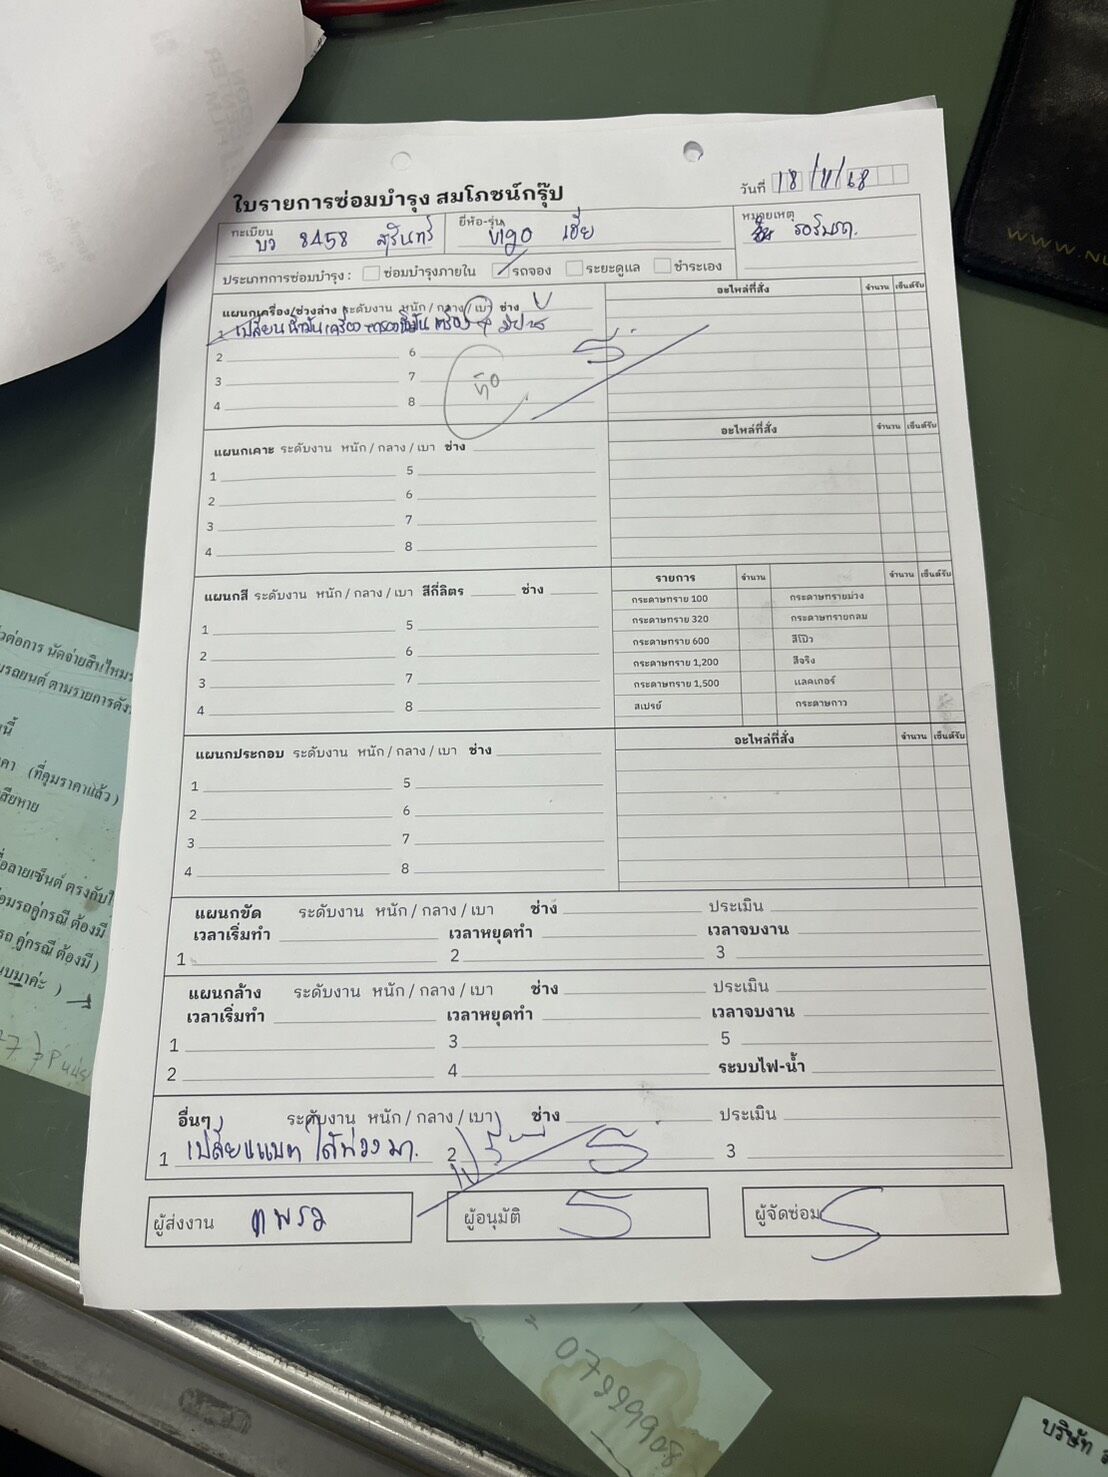 ใบรายการซ่อมบำรุง สมโภชน์กรุ๊ป
วันที่ 18/11/68
ทะเบียน บว 8458 สุรินทร์ ยี่ห้อ-รุ่น vigo หมายเหตุ รอรับรถ.
ประเภทการซ่อมบำรุง : ซ่อมบำรุงภายใน รถจอง ระยะดูแล ชำระเอง
แผนกเครื่อง/ช่วงล่าง ระดับงาน หนัก / กลาง / เบา ช่าง อะไหล่ที่สั่ง จำนวน เซ็นต์รับ
1 เปลี่ยนน้ำมันเครื่อง
2 6
3 7
4 8
แผนกเคาะ ระดับงาน หนัก / กลาง / เบา ช่าง อะไหล่ที่สั่ง จำนวน เซ็นต์รับ
1 5
2 6
3 7
4 8
แผนกสี ระดับงาน หนัก / กลาง / เบา สีกี่ลิตร ช่าง รายการ จำนวน จำนวน เซ็นต์รับ
1 5
2 6
3 7
4 8
กระดาษทราย 100 กระดาษทรายม่วง
กระดาษทราย 320 กระดาษทรายกลม
กระดาษทราย 600 สีโป๊ว
กระดาษทราย 1,200 สีจริง
กระดาษทราย 1,500 แลคเกอร์
สเปรย์ กระดาษกาว
แผนกประกอบ ระดับงาน หนัก / กลาง / เบา ช่าง อะไหล่ที่สั่ง จำนวน เซ็นต์รับ
1 5
2 6
3 7
4 8
แผนกขัด ระดับงาน หนัก / กลาง / เบา ช่าง ประเมิน
เวลาเริ่มทำ เวลาหยุดทำ เวลาจบงาน
1 2 3
แผนกล้าง ระดับงาน หนัก / กลาง / เบา ช่าง ประเมิน
เวลาเริ่มทำ เวลาหยุดทำ เวลาจบงาน
1 3 5
2 4 ระบบไฟ-น้ำ
อื่นๆ ระดับงาน หนัก / กลาง / เบา ช่าง ประเมิน
1 เปลี่ยนแบต 2 3
ผู้ส่งงาน ผู้อนุมัติ ผู้จัดซ่อม
นัดจ่ายสินไหม
รถยนต์ ตามรายการดัง
(ที่คุมราคาแล้ว)
เสียหาย
ลายเซ็นต์ ตรงกับ
รถคู่กรณี ต้องมี
รถ คู่กรณี ต้องมี )
บมาค่ะ )
บริษัท